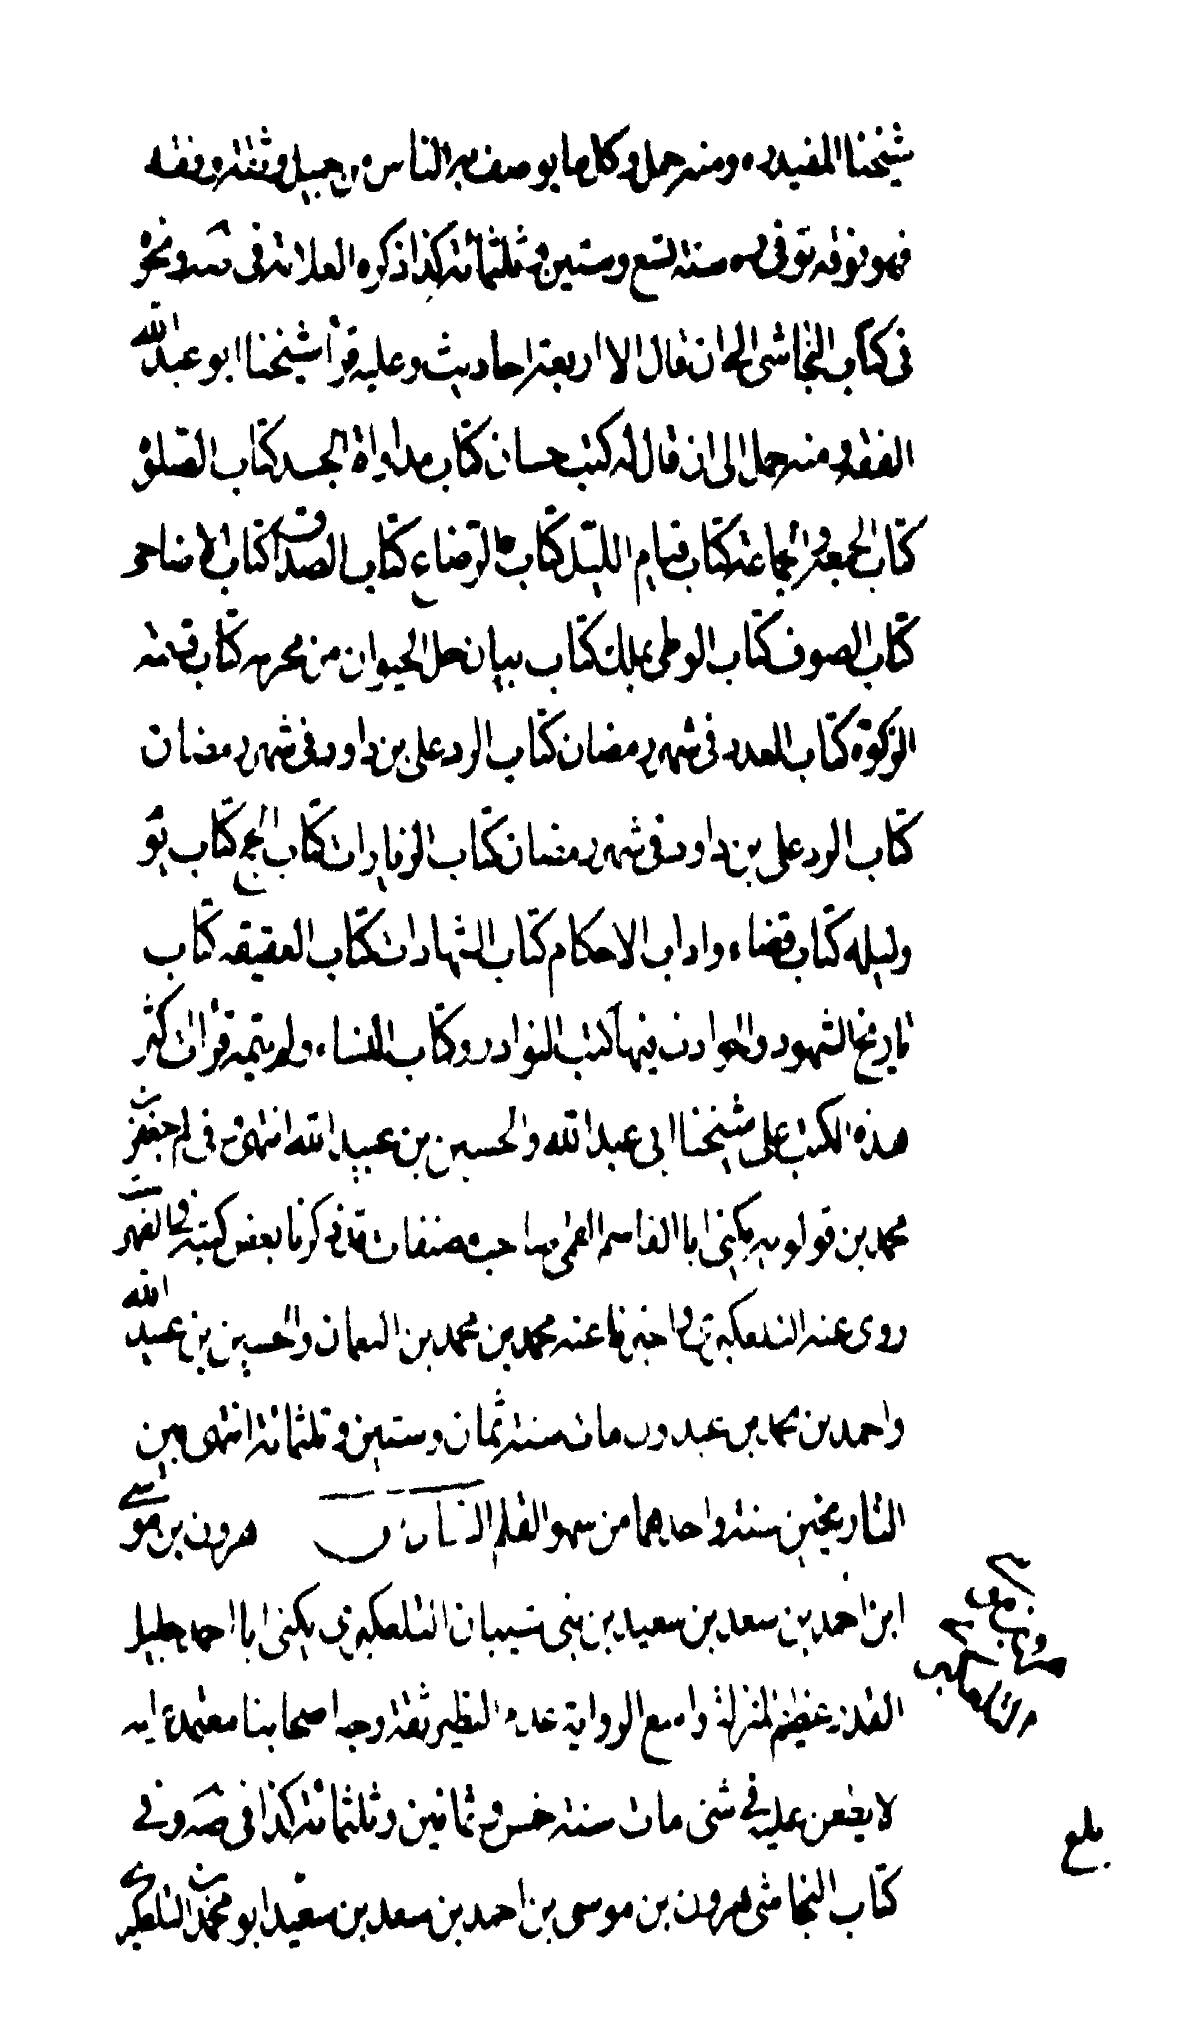 شيخنا المفيد ره ومنه حمل وكلما يوصف به الناس من جميل وثقة وفقه
فهو فوقه توفى ره سنة تسع وستين وثلثمائة كذا ذكره العلامة فى صه ونحوه
فى كتاب النجاشى الى ان قال الا اربعة احاديث وعليه قرأ شيخنا ابو عبد الله
الفقه ومنه حمل الى ان قال له كتب حسان كتاب مداواة الجسد كتاب الصلوة
كتاب الجمعة والجماعة كتاب قيام الليل كتاب الرضاع كتاب الصداق كتاب الاضاحى
كتاب الصرف كتاب الوطى بملك كتاب بيان حل الحيوان من محرمه كتاب قسمة
الزكوة كتاب العدد فى شهر رمضان كتاب الرد على بن داود فى شهر رمضان
كتاب الرد على بن داود فى شهر رمضان كتاب الزيارات كتاب الحج كتاب يوم
وليله كتاب قضاء واداب الاحكام كتاب الشهادات كتاب العقيقه كتاب
تاريخ الشهور والحوادث فيها كتاب النوادر وكتاب النساء ولم يتمه قرأت اكثر
هذه الكتب على شيخنا ابى عبد الله والحسين بن عبيد الله انتهى وفى لم جعفر بن
محمد بن قولويه يكنى ابا القاسم القمى صاحب مصنفات قد ذكرنا بعض كتبه فى الفهرست
روى عنه التلعكبرى واخبرنا عنه محمد بن محمد بن النعمان والحسين بن عبيد الله
واحمد بن محمد بن عبدون مات سنة ثمان وستين وثلثمائة انتهى وبين
التاريخين سنة واحدهما من سهو القلم هرون بن موسى
ابن احمد بن سعد بن سعيد بن بنى شيبان التلعكبرى يكنى ابا احمد جليل
القدر عظيم المنزلة واسع الرواية عديم النظير ثقة وجه اصحابنا معتمد عليه
لا يطعن عليه فى شئ مات سنة خمس وثمانين وثلثمائة كذا فى صه وفى
كتاب النجاشى هرون بن موسى بن احمد بن سعد بن سعيد ابو محمد التلعكبرى
هرون بن موسى
التلعكبرى
بلغ